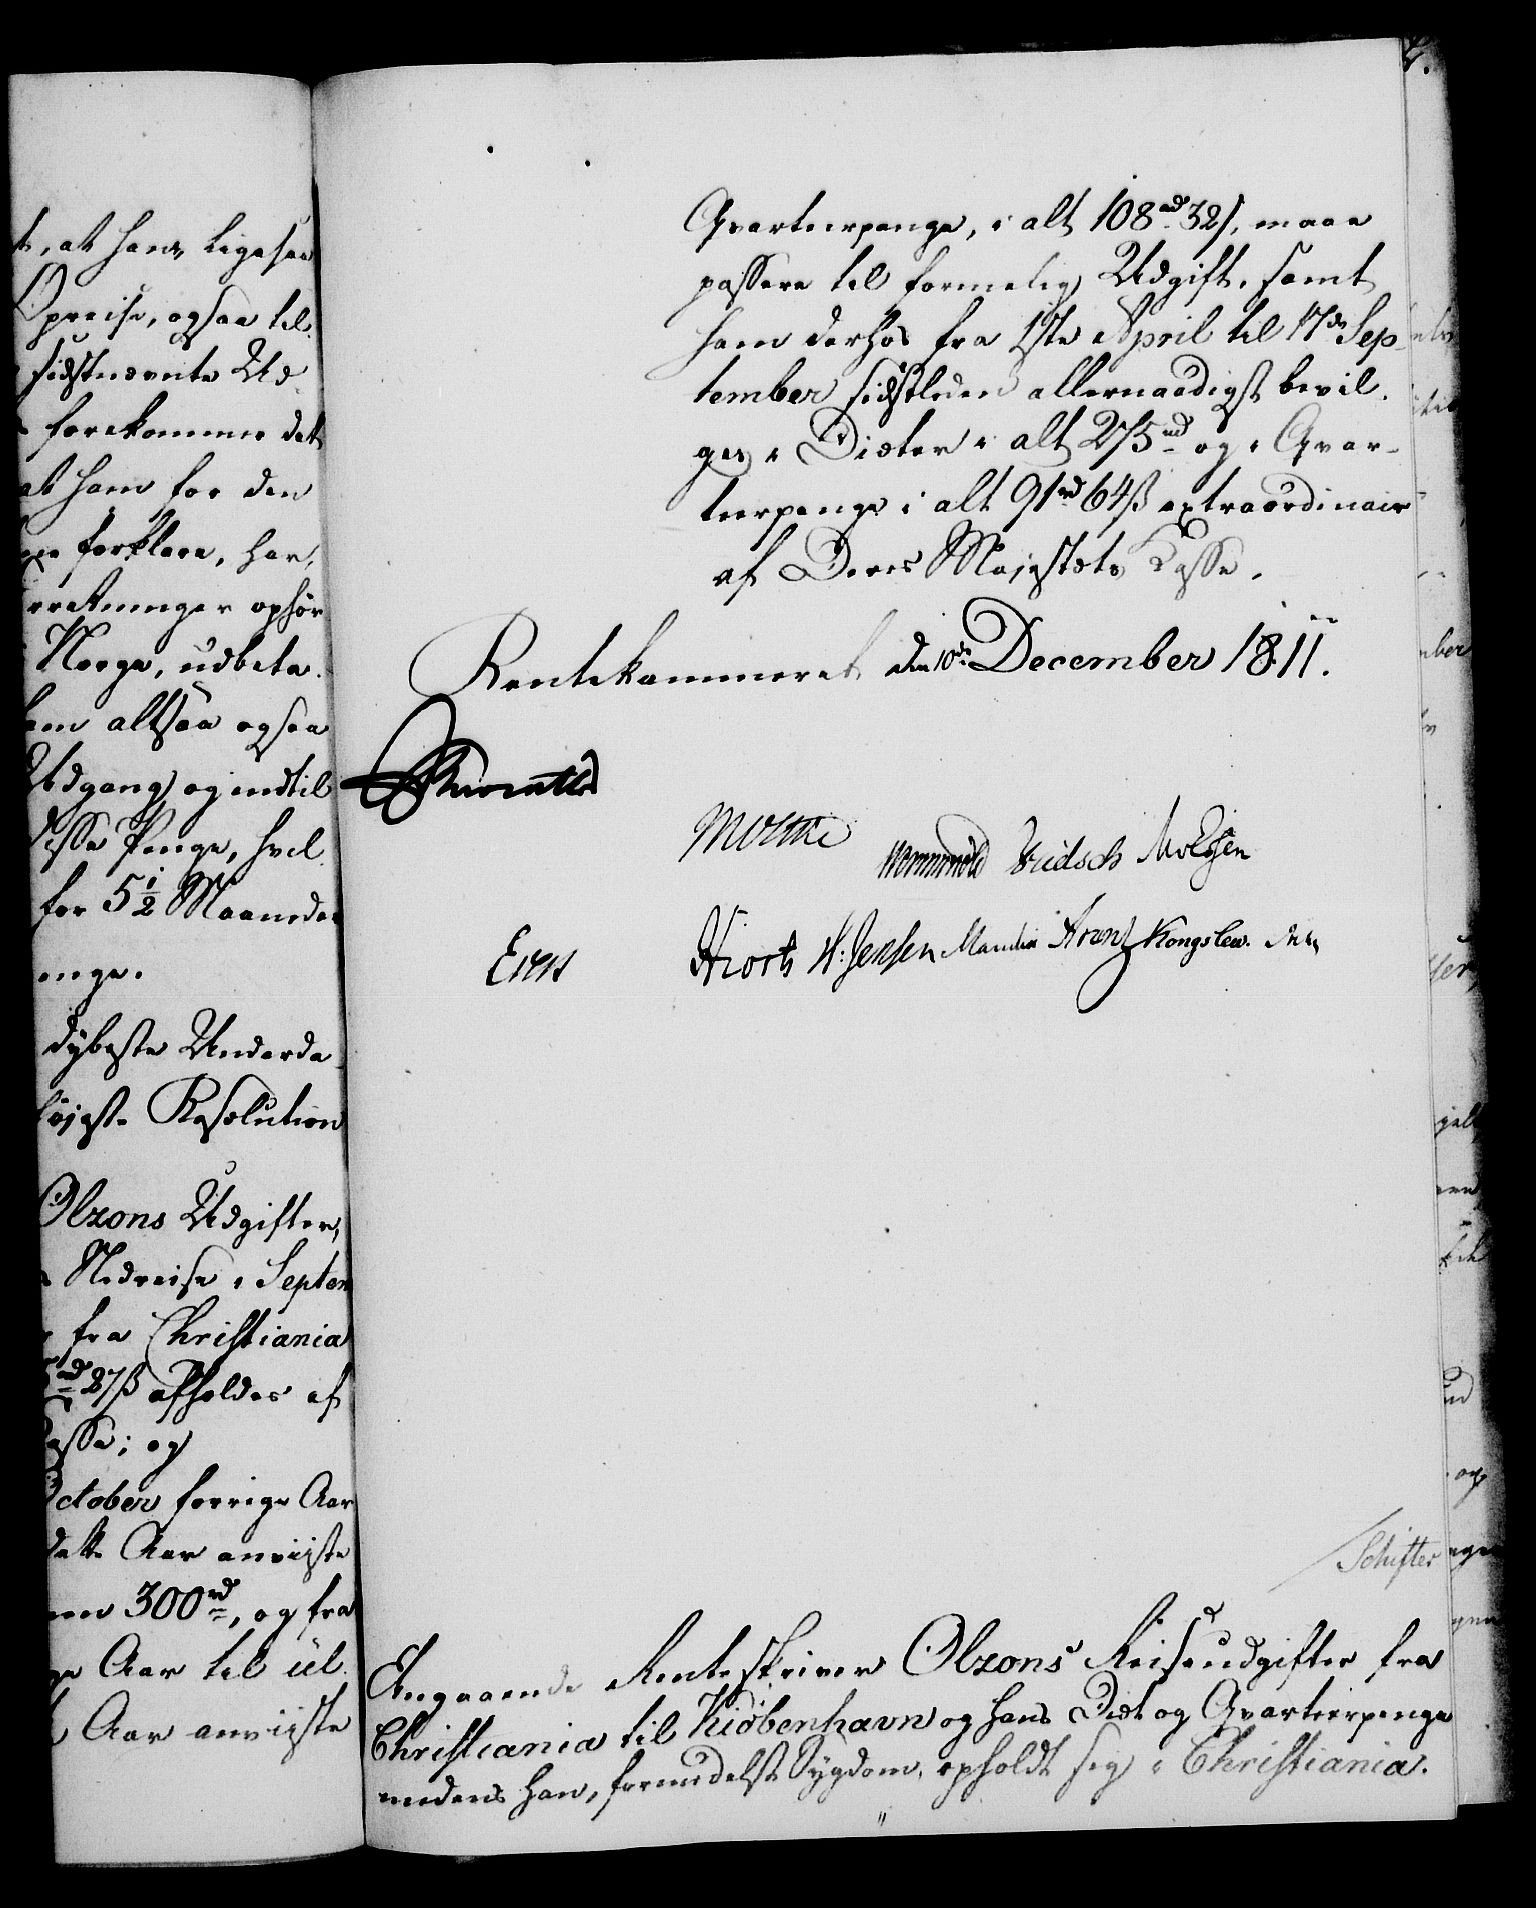 t, at hans ligesaa
Opreise, ogsaa til
sidstnævnte Ud-
forekommer det
at ham for den
forklare, har,
rretninger ophør
Norge, udbeta-
ham altsaa ogsaa
Udgang og indtil
disse Penge, hvil
for 5 1/2 Maaneder
enge.
dybeste Underda-
høieste Resolution
Olzons Udgifter,
Nedreise i Septem
fra Christiania
rd 27 ß afholdes af
Casse; og
October forrige Aar
dette Aar anviiste
300 rd, og fra
ge Aar til ul.
Aar anviiste
Qvarteerpenge, i alt 108 rd 32 ß, maae
passere til formelig Udgift, samt
ham derhos fra 1ste April til 17de Sep-
tember sidstleden allernaadigst bevil-
ges i Diæter i alt 275 rd og i Qvar-
teerpenge i alt 91 rd 64 ß extraordinair
af Deres Majestæts Casse.
Rentekammeret den 10de December 1811.
Wormskiold
Hiorth H: Jensen Arentz Kongslew
Schifter
Angaaende Renteskriver Olzons Reiseudgifter fra
Christiania til Kiöbenhavn og hans Diæt og Qvarteerpenge
medens han, formedelst Sygdom, opholdt sig i Christiania.